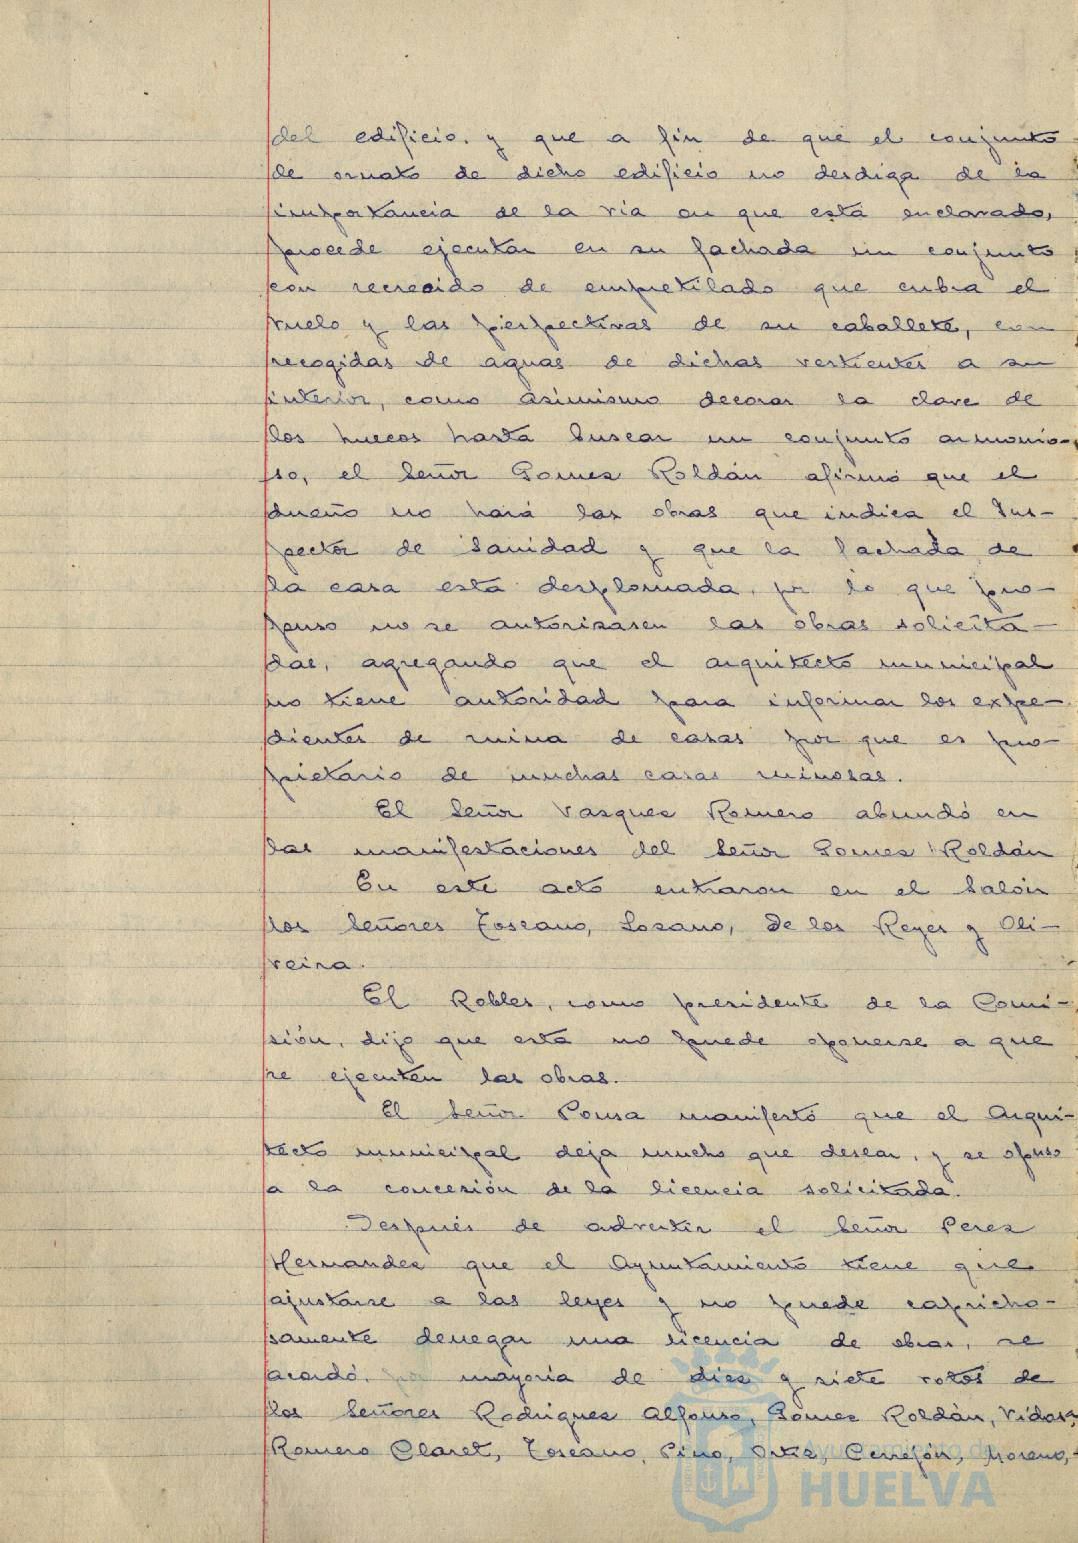 del edificio, y que a fin de que el conjunto
de ornato de dicho edificio no desdiga de la
importancia de la vía en que está enclavado,
procede ejecutar en su fachada un conjunto
con recrecido de empretilado que cubra el
vuelo y las perspectivas de su caballete, con
recogidas de aguas de dichas vertientes a su
interior, como asimismo decorar la clave de
los huecos hasta buscar un conjunto armonio-
so, el Señor Gomez Roldán afirmó que el
dueño no hará las obras que indica el Ins-
pector de Sanidad y que la fachada de
la casa está desplomada, por lo que pro-
puso no se autorizasen las obras solicita-
das, agregando que el arquitecto municipal
no tiene autoridad para informar los expe-
dientes de ruina de casas por que es pro-
pietario de muchas casas ruinosas.
El Señor Vazquez Romero abundó en
las manifestaciones del Señor Gomez Roldán
En este acto entraron en el Salón
los Señores Toscano, Lozano, de los Reyes y Oli-
veira.
El Robles, como presidente de la Comi-
sión, dijo que esta no puede oponerse a que
se ejecuten las obras.
El Señor Ponsa manifestó que el Arqui-
tecto municipal deja mucho que desear, y se opuso
a la concesión de la licencia solicitada.
Después de advertir el Señor Perez
Hernandez que el Ayuntamiento tiene que
ajustarse a las leyes y no puede capricho-
samente denegar una licencia de obras, se
acordó, por mayoría de diez y siete votos de
los Señores Rodriguez Alfonso, Gomez Roldán, Vidosa,
Romero Claret, Toscano, Pino, Ortiz, Cerrejón, Moreno,
Ayuntamiento de
HUELVA